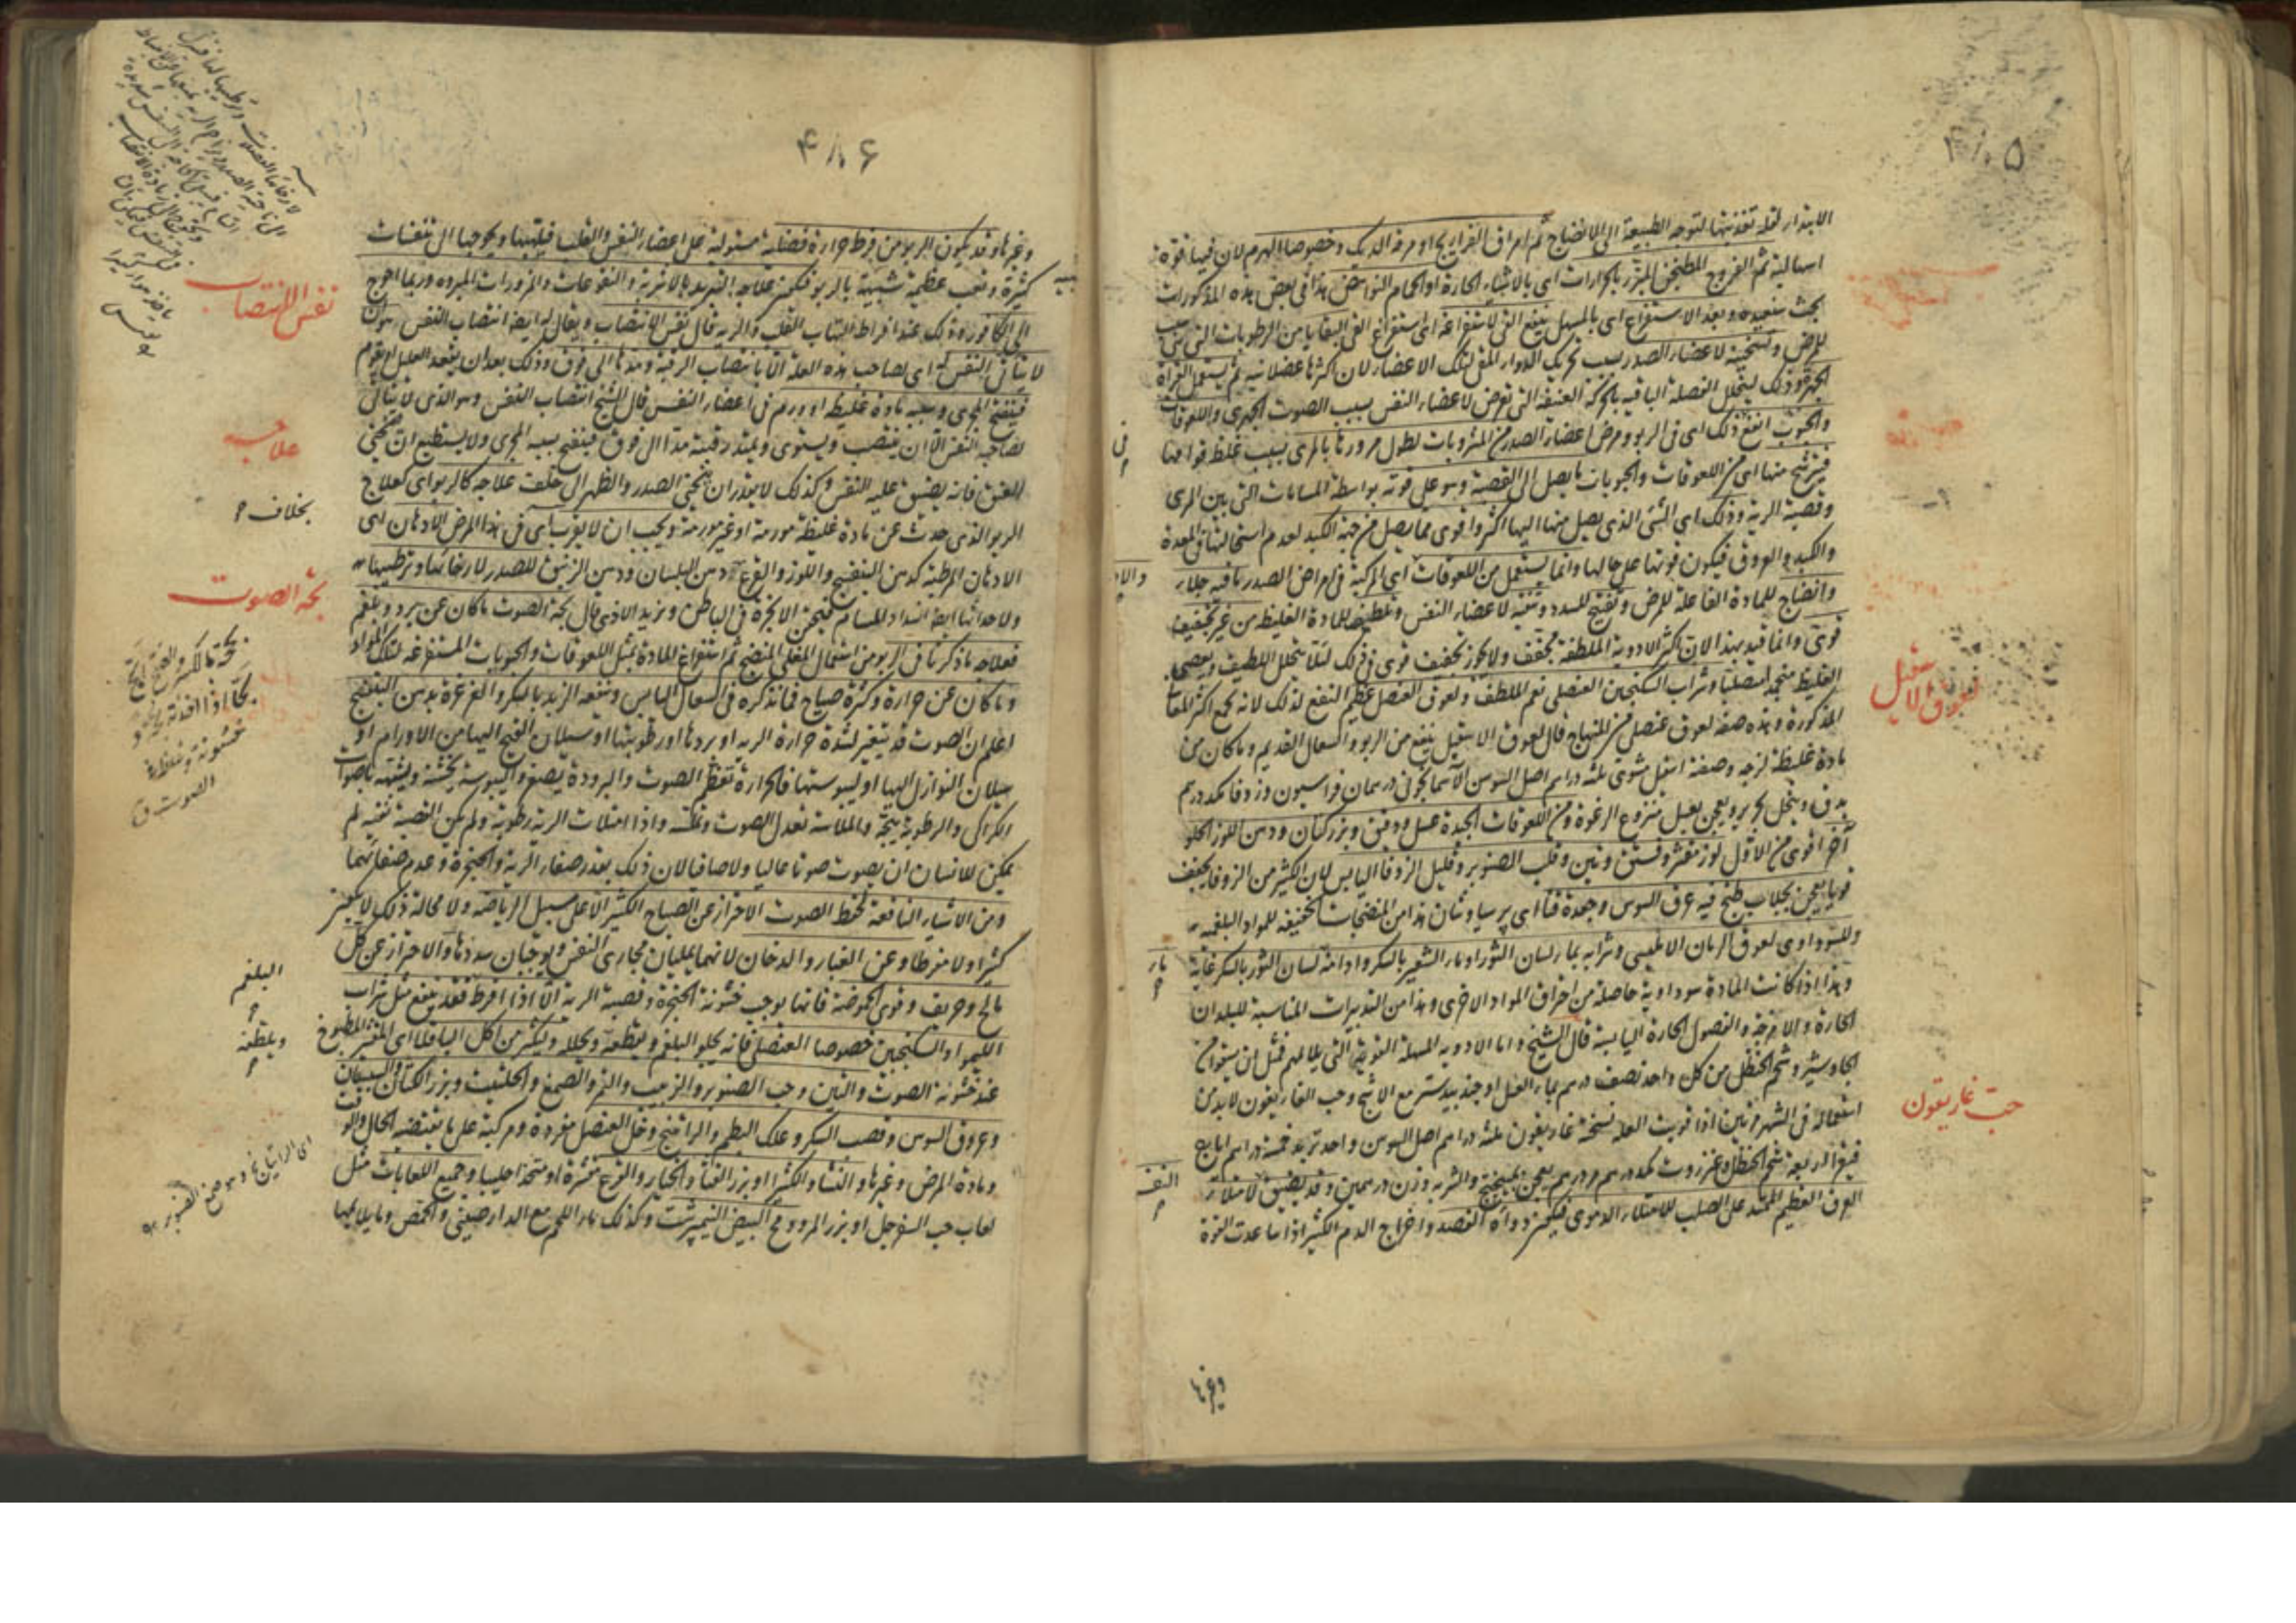 الابتداء لقلة تغذيتها لتوجه الطبيعة الى الانضاج ثم امراق الفراريج او مرقة الديك وخصوصا الهرم لان فيها قوة
اسهالية ثم الفروج المطجن المبزر بالحارات اى بالاشياء الحارة او الحمام النواهض هذا فى بعض هذه المذكورات
بحث وبعد الاستفراغ اى بالمسهل ينفع القى لاستفراغه اى استفراغ القى البقايا من الرطوبات التى هى سبب
للمرض وتسخينه لاعضاء الصدر بسبب تحريك الدواء المقى لتلك الاعضاء لان اكثرها عضلانية ثم يستعمل القراة
الجهرة وذلك ليتحلل الفضلة الباقية بالحركة العنيفة التى تعرض لاعضاء النفس بسبب الصوت الجهرى واللعوقات
والحبوب انفع ذلك اى فى الربو ومرض اعضاء الصدر من المشروبات لطول مرورها بالمرى بسبب غلظ قوامها
فيترشح منها اى من اللعوقات والحبوبات ما يصل الى القصبة وهو على قوته بواسطة المسامات التى بين المرى
وقصبة الرية وذلك اى الشئ الذى يصل منها اليها اكثر واقوى مما يصل من جهة الكبد لعدم استحالتها فى المعدة
والكبد والعروق فيكون قوتها على حالها وانما يستعمل من اللعوقات اى المركبة فى امراض الصدر ما فيه جلاء
وانضاج للمادة الفاعلة للمرض وتفتيح للسدد وتنقية لاعضاء النفس وتلطيف للمادة الغليظة من غير تجفيف
قوى وانما قيد بهذا لان اكثر الادوية الملطفة مجفف ولا يجوز تجفيف قوى فى ذلك لئلا يتحلل اللطيف ويعصى
الغليظ متحجرا متصلبا وشراب السكنجبين العنصلى نعم الملطف ولعوق العنصل عظيم النفع لذلك لانه يجمع اكثر الصفات
المذكورة وهذه صفة لعوق عنصل من المنهاج قال لعوق الاسقيل ينفع من الربو والسعال القديم وما كان من
مادة غليظة لزجة وصفته اسقيل مشوى ثلثة دراهم اصل السوسن الاسمانجونى درهمان فراسيون وزوفا كل درهم
يدق وينخل بحرير ويعجن بعسل منزوع الرغوة ومن اللعوقات الجيدة عسل ودبق وبزركتان ودهن اللوز الحلو
آخر اقوى من الاول لوز مقشر وفستق وتين وقلب الصنوبر وقليل الزوفا اليابس لان الكثير من الزوفا يجفف
قويا يعجن بجلاب طبخ فيه عرق السوس وجعدة قنا اى پرسياوشان هذا من المنضجات الخفيفة للمواد البلغمية
وللسوداوى لعوق الرمان الامليسى وشرابه بماء لسان الثور او ماء الشعير بالسكر وادامة لسان الثور بالسكر غاية
وهذا اذا كانت المادة سوداوية حاصلة من احراق المواد الاخرى وهذا من التدبيرات المناسبة للبلدان
الحارة والامزجة والفصول الحارة اليابسة قال الشيخ واما الادوية المسهلة القوية التى يلائمهم فمثل ان يسقوا من
الجاوشير وشحم الحنظل من كل واحد نصف درهم بماء العسل او جندبيدستر مع الاشج وحب الغاريقون لابد من
استعماله فى الشهر مرتين اذا قويت العلة نسخته غاريقون ثلثة دراهم اصل السوسن واحد تربد خمسة دراهم ايارج
فيقرا اربعة شحم الحنظل وعنزروت كل درهم درهم يعجن بميبختج والشربة وزن درهمين وقد يضيق لامتلاء
العرق العظيم الممتد على الصلب للامتلاء الدموى فيكون دواه الفصد واخراج الدم الكثير اذا ساعدت القوة
وغيرها
لعوق الاسقيل
حب غاريقون
۴۸۶
وغيرها وقد يكون الربو من فرط حرارة فضلية مستولية على اعضاء النفس والقلب فيلهبها ويحوجها الى تنفسات
كثيرة وتعب عظيمة شبيهة بالربو فيكون علاجه التبريد بالاشربة والنقوعات والمزورات المبردة وربما احوج
الى الكافور وذلك عند افراط التهاب القلب والرية قال نفس الانتصاب ويقال له ايضا انتصاب النفس هو ان
لا يتأتى النفس له اى لصاحب هذه العلة الا بانتصاب الرقبة ومدها الى فوق وذلك بعد ان يقعد العليل او يقوم
فينفتح المجرى وسببه مادة غليظة او ورم فى اعضاء النفس قال الشيخ انتصاب النفس وهو الذى لا يتأتى
لصاحبه النفس الا ان ينتصب ويستوى ويمتد رقبته مدا الى فوق فينفتح بسببه المجرى ولا يستطيع ان يحنى
العنق فانه يضيق عليه النفس وكذلك لا يقدر ان يحنى الصدر والظهر الى خلف علاجه كالربو اى كعلاج
الربو الذى حدث عن مادة غليظة مورمة او غير مورمة ويجب ان لا يقرب اى فى هذا المرض الادهان اى
الادهان المرطبة كدهن البنفسج واللوز والقرع دهن البلسان ودهن الزنبق للصدر لارخائها وترطيبها
ولاحداثها ايضا انسداد المسام فيحتقن الابخرة فى الباطن ويزيد الاذى قال بحة الصوت ما كان عن برد وبلغم
فعلاجه ما ذكرنا فى الربو من استعمال المغلى المنضج ثم استفراغ المادة بمثل اللعوقات والحبوبات المستفرغة لتلك المواد
وما كان عن حرارة وكثرة صياح فما نذكره فى السعال اليابس وينفعه الزبد بالسكر والغرغرة بدهن البنفسج
اعلم ان الصوت قد يتغير لشدة حرارة الرية او بردها او رطوبتها او سيلان القيح اليها من الاورام او
سيلان النوازل اليها او ليبوستها فالحرارة تعظم الصوت والبرودة يصغره واليبوسة يخشنه ويشبهه باصوات
الكراكى والرطوبة يبحة والملاسة تعدل الصوت وتملسه واذا امتلات الرية رطوبة ولم يكن القصبة نقية لم
يمكن للانسان ان يصوت صوتا عاليا ولا صافيا لان ذلك بقدر صفاء الرية والحنجرة وعدم صفائهما
ومن الاشياء النافعة لحفظ الصوت الاحتراز عن الصياح الكثير الا على سبيل الرياضة ولا محالة ذلك لا يكون
كثيرا ولا مفرطا وعن الغبار والدخان لانهما يمليان مجارى النفس ويوجبان سددها والاحتراز عن كل
مالح وحريف وقوى الحموضة فانها يوجب خشونة الحنجرة وقصبة الرية الا اذا افرط فقد ينفع مثل شراب
الليمو او السكنجبين خصوصا العنصلى فانه يجلو البلغم ويقطعه ويحلله وليكثر من اكل الباقلا اى المقشر المطبوخ
عند خشونة الصوت والتين وحب الصنوبر والزبيب والتمر والصمغ والحلتيت وبزر الكتان والسبستان
وعروق السوس وقصب السكر وعلك البطم والراتينج وخل العنصل مفردة ومركبة على ما يقتضيه الحال والوقت
ومادة المرض وغيرها والنشاء والكثيرا وبزر القثاء والخيار والقرع مقشرة او متخذ احليبا وجميع اللعابات مثل
لعاب حب السفرجل او بزر المرو ومح البيض النيمبرشت وكذلك ماء اللحم مع الدارصينى والحمص وما يلائمها
نفس الانتصاب
علاجه
بخلاف
بحة الصوت
خشونة وغلظ
الصوت ق
البلغم
ويلطفه